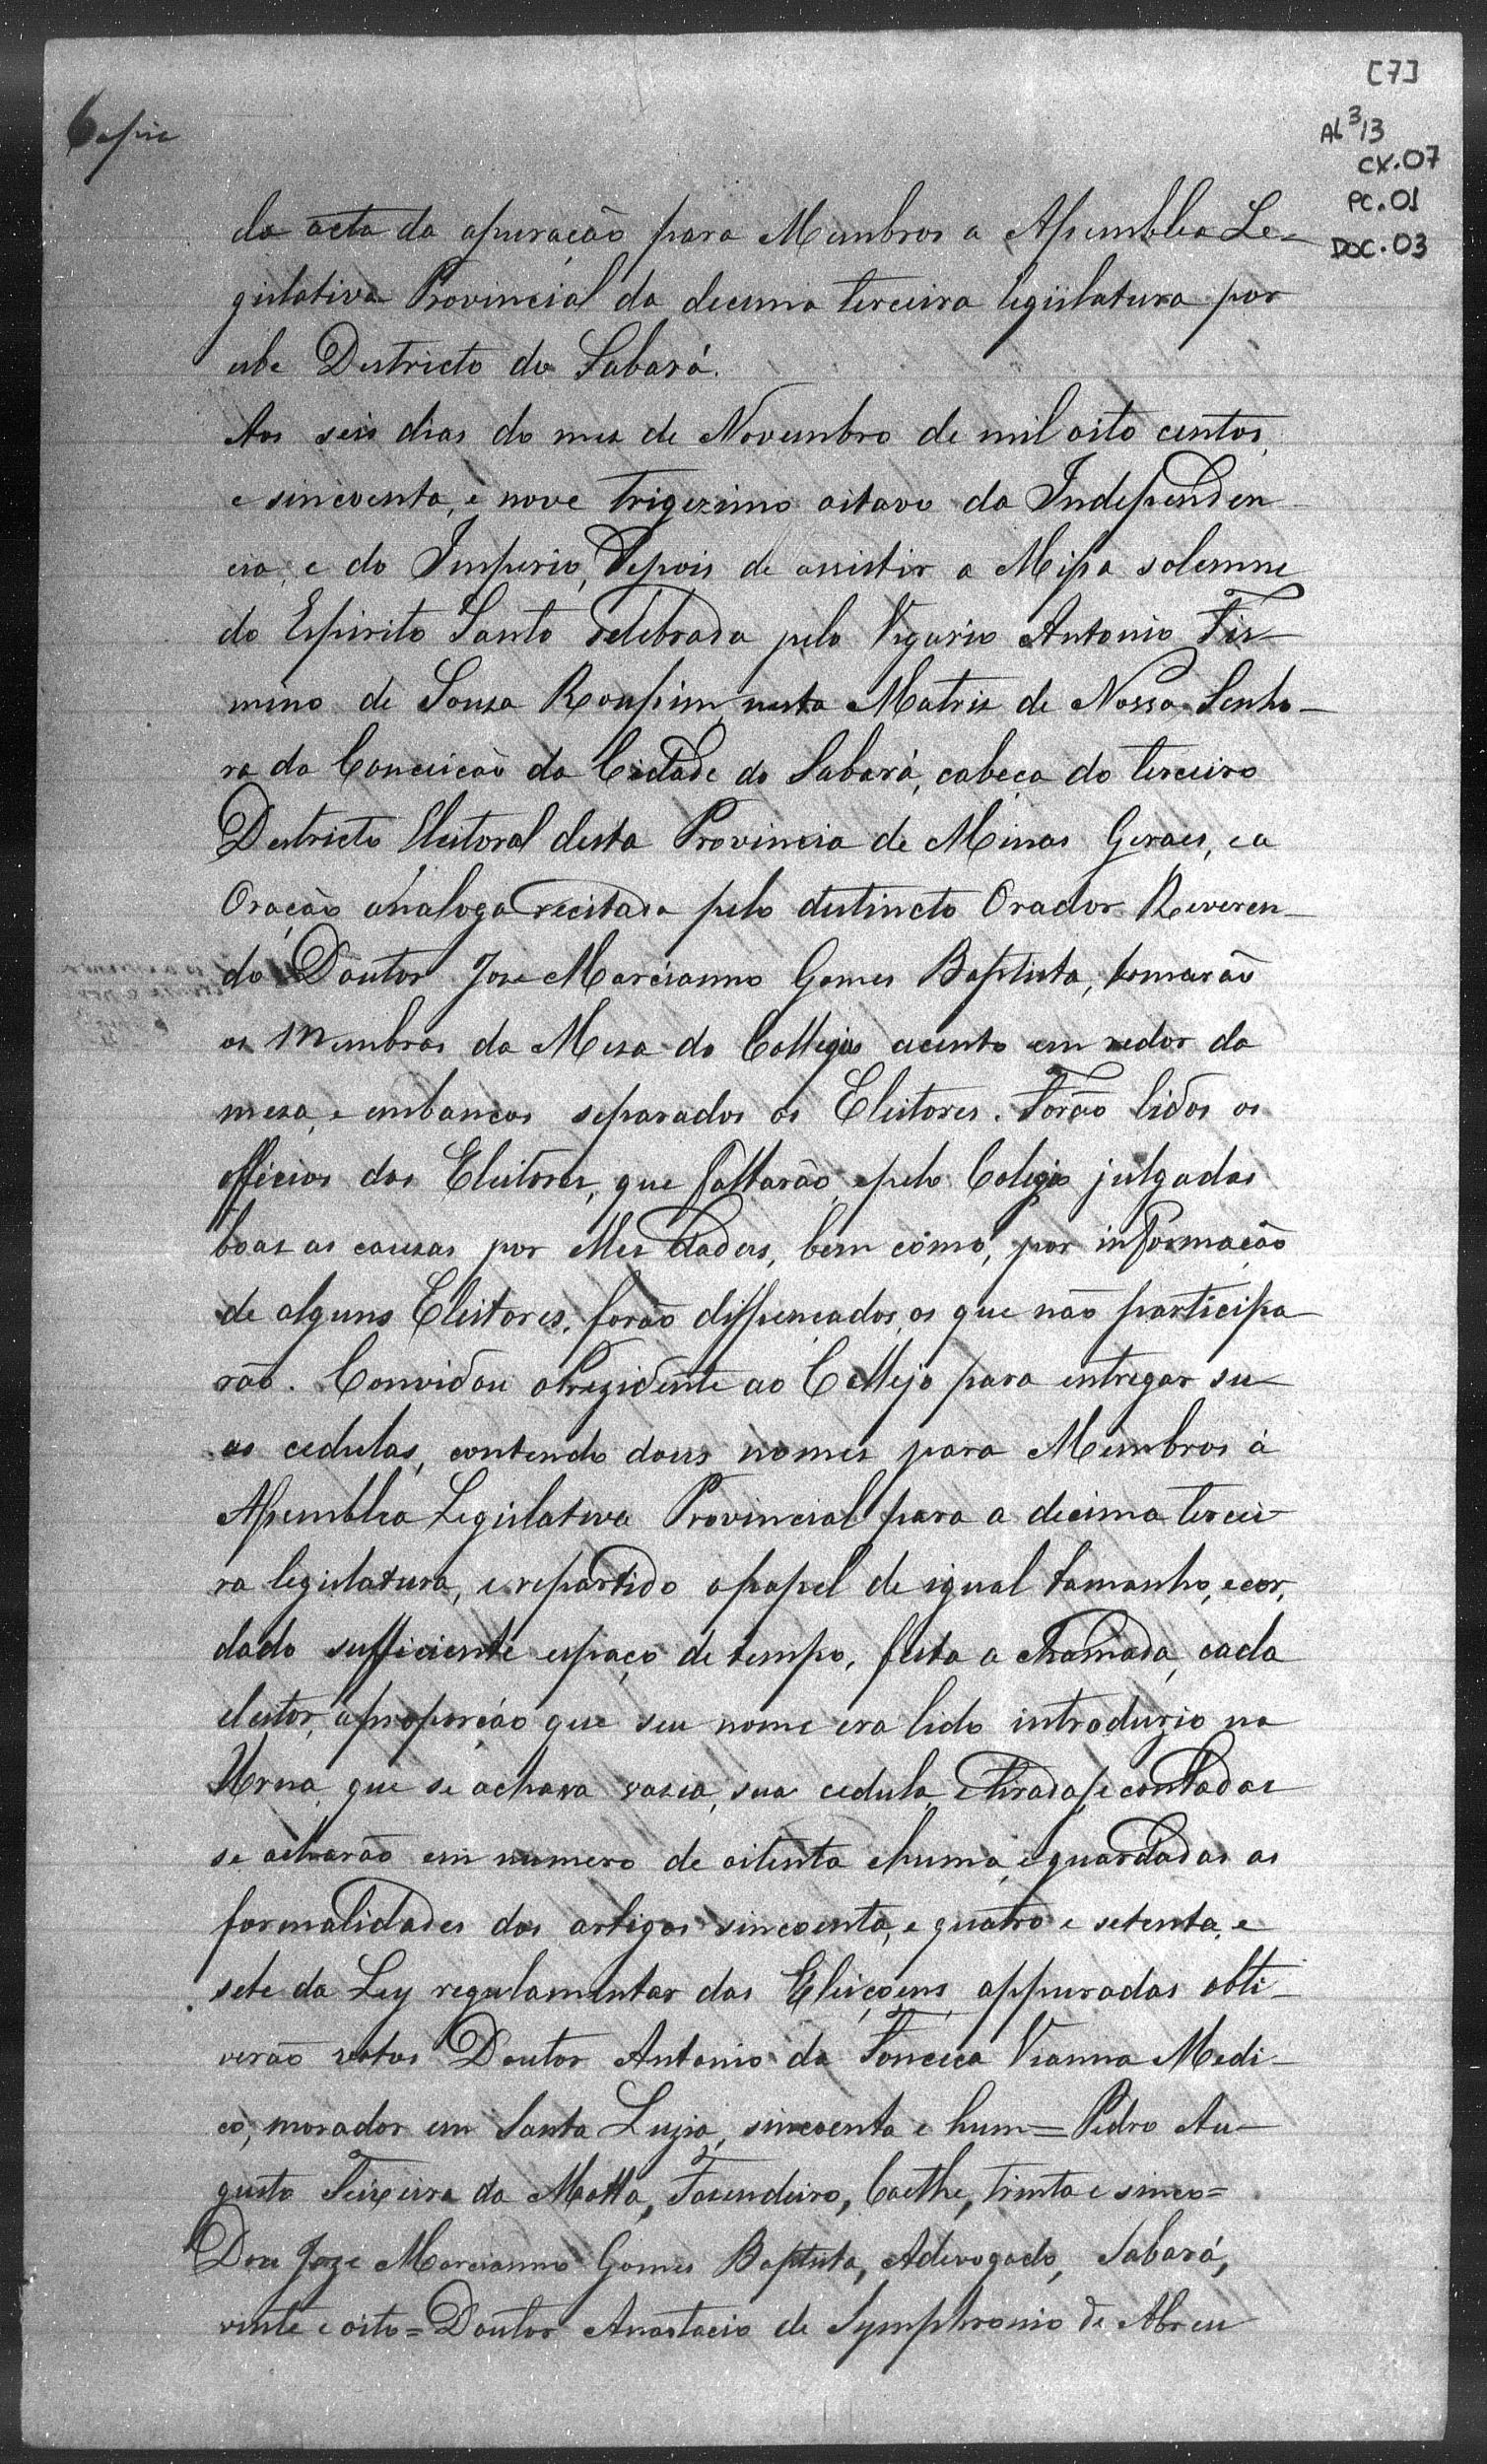 [7]
AL 3/13
CX.07
PC.01
DOC.03
Copia
da acta da apuração para Membros a Assemblea Le-
gislativa Provincial da decima terceira legislatura por
este Destricto do Sabará.
Aos seis dias do mez de Novembro de mil oito centos,
e sincoenta, e nove trigezimo oitavo da Independen-
cia, e do Imperio, depois de assistir a Missa solemne
do Espirito Santo celebrada pelo Vigario Antonio Fir-
mino de Souza Roussim, nesta Matriz de Nossa Senho-
ra da Conceicão da Cidade do Sabará, cabeça do terceiro
Destricto Eleitoral desta Provincia de Minas Geraes, e a
Oração análoga recitada pelo destincto Orador Reveren-
do Doutor Jose Marcianno Gomes Baptista, tomarão
os Membros da Mesa do Collegio acento em redor da
meza, e em bancos separados os Eleitores. Forão lidos os
officios dos Eleitores, que faltarão, e pelo Colegio julgadas
boas as causas por elles dadas, bem como, por informação
de alguns Eleitores, forão dispençados, os que não participa-
rão. Convidou o Prezidente ao Collejo para entregar su-
as cedulas, contendo dous nomes para Membros á
Assemblea Legislativa Provincial para a decima tercei-
ra legislatura, e repartido o papel de igual tamanho, e cor,
dado sufficiente espaço de tempo, feita a chamada, cada
eleitor, á proporção que seu nome era lido introduzio na
Urna, que se achava vazia, sua cedula, e tiradas, e contadas
se acharão em numero de oitenta e huma, e guardadas as
formalidades dos artigos sincoenta, e quatro e setenta, e
sete da Ley regulamentar das Eleiçoens, appuradas obti-
verão votos Doutor Antonio da Fonceca Vianna Medi-
co, morador em Santa Luzia, sincoenta e hum = Pedro Au-
gusto Teixeira da Motta, Fazendeiro, Caethe, trinta e sinco =
Dou Joze Marcianno Gomes Baptista, Adevogado, Sabará,
vinte e oito = Doutor Anastacio de Symphronio de Abreu